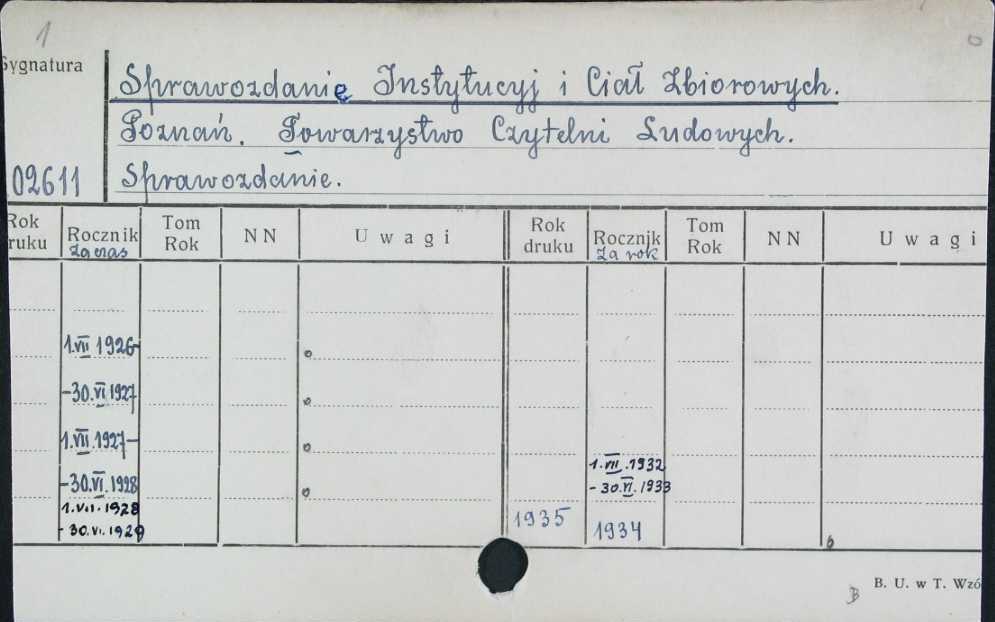 1
Sygnatura
Sprawozdanie Instytucyj i Ciał Zbiorowych.
Poznań. Towarzystwo Czytelni Ludowych.
02611 Sprawozdanie.
Rok ruku Rocznik za czas Tom Rok NN Uwagi Rok druku Rocznik za rok Tom Rok NN Uwagi
1.VII 1926-
-30.VI.1927
1.VII.1927-
-30.VI.1928 1.VII.1932
1.VII.1928 - 30.VI.1933
- 30.VI.1929 1935 1934
B. U. w T. Wzó